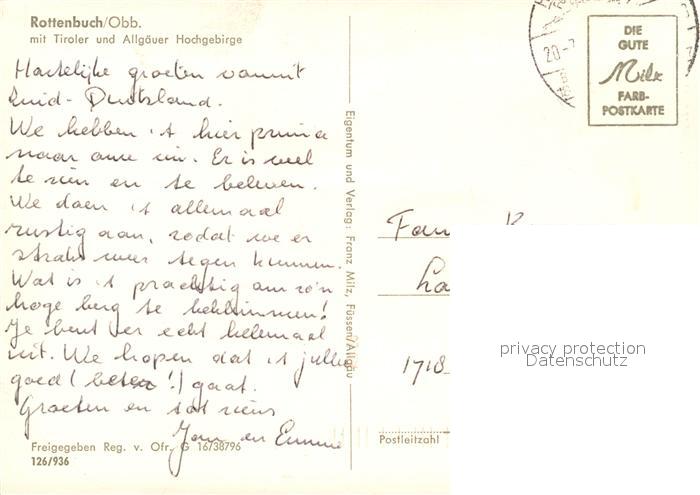 Rottenbuch/Obb.
mit Tiroler und Allgäuer Hochgebirge
Hartelijke groeten vanuit
Zuid-Duitsland.
We hebben 't hier prima
naar onze zin. Er is veel
te zien en te beleven.
We doen 't allemaal
rustig aan, zodat we er
straks weer tegen kunnen.
Wat is 't prachtig om zo'n
hoge berg te beklimmen!
Je bent er echt helemaal
uit. We hopen dat 't jullie
goed (beter!) gaat.
Groeten en tot ziens
Jan en Emmie
Freigegeben Reg. v. Ofr. G 16/38796
126/936
Eigentum und Verlag: Franz Milz, Füssen/Allgäu
20.-7
DIE
GUTE
Milz
FARB-
POSTKARTE
Fam.
La
1718
Postleitzahl
privacy protection
Datenschutz